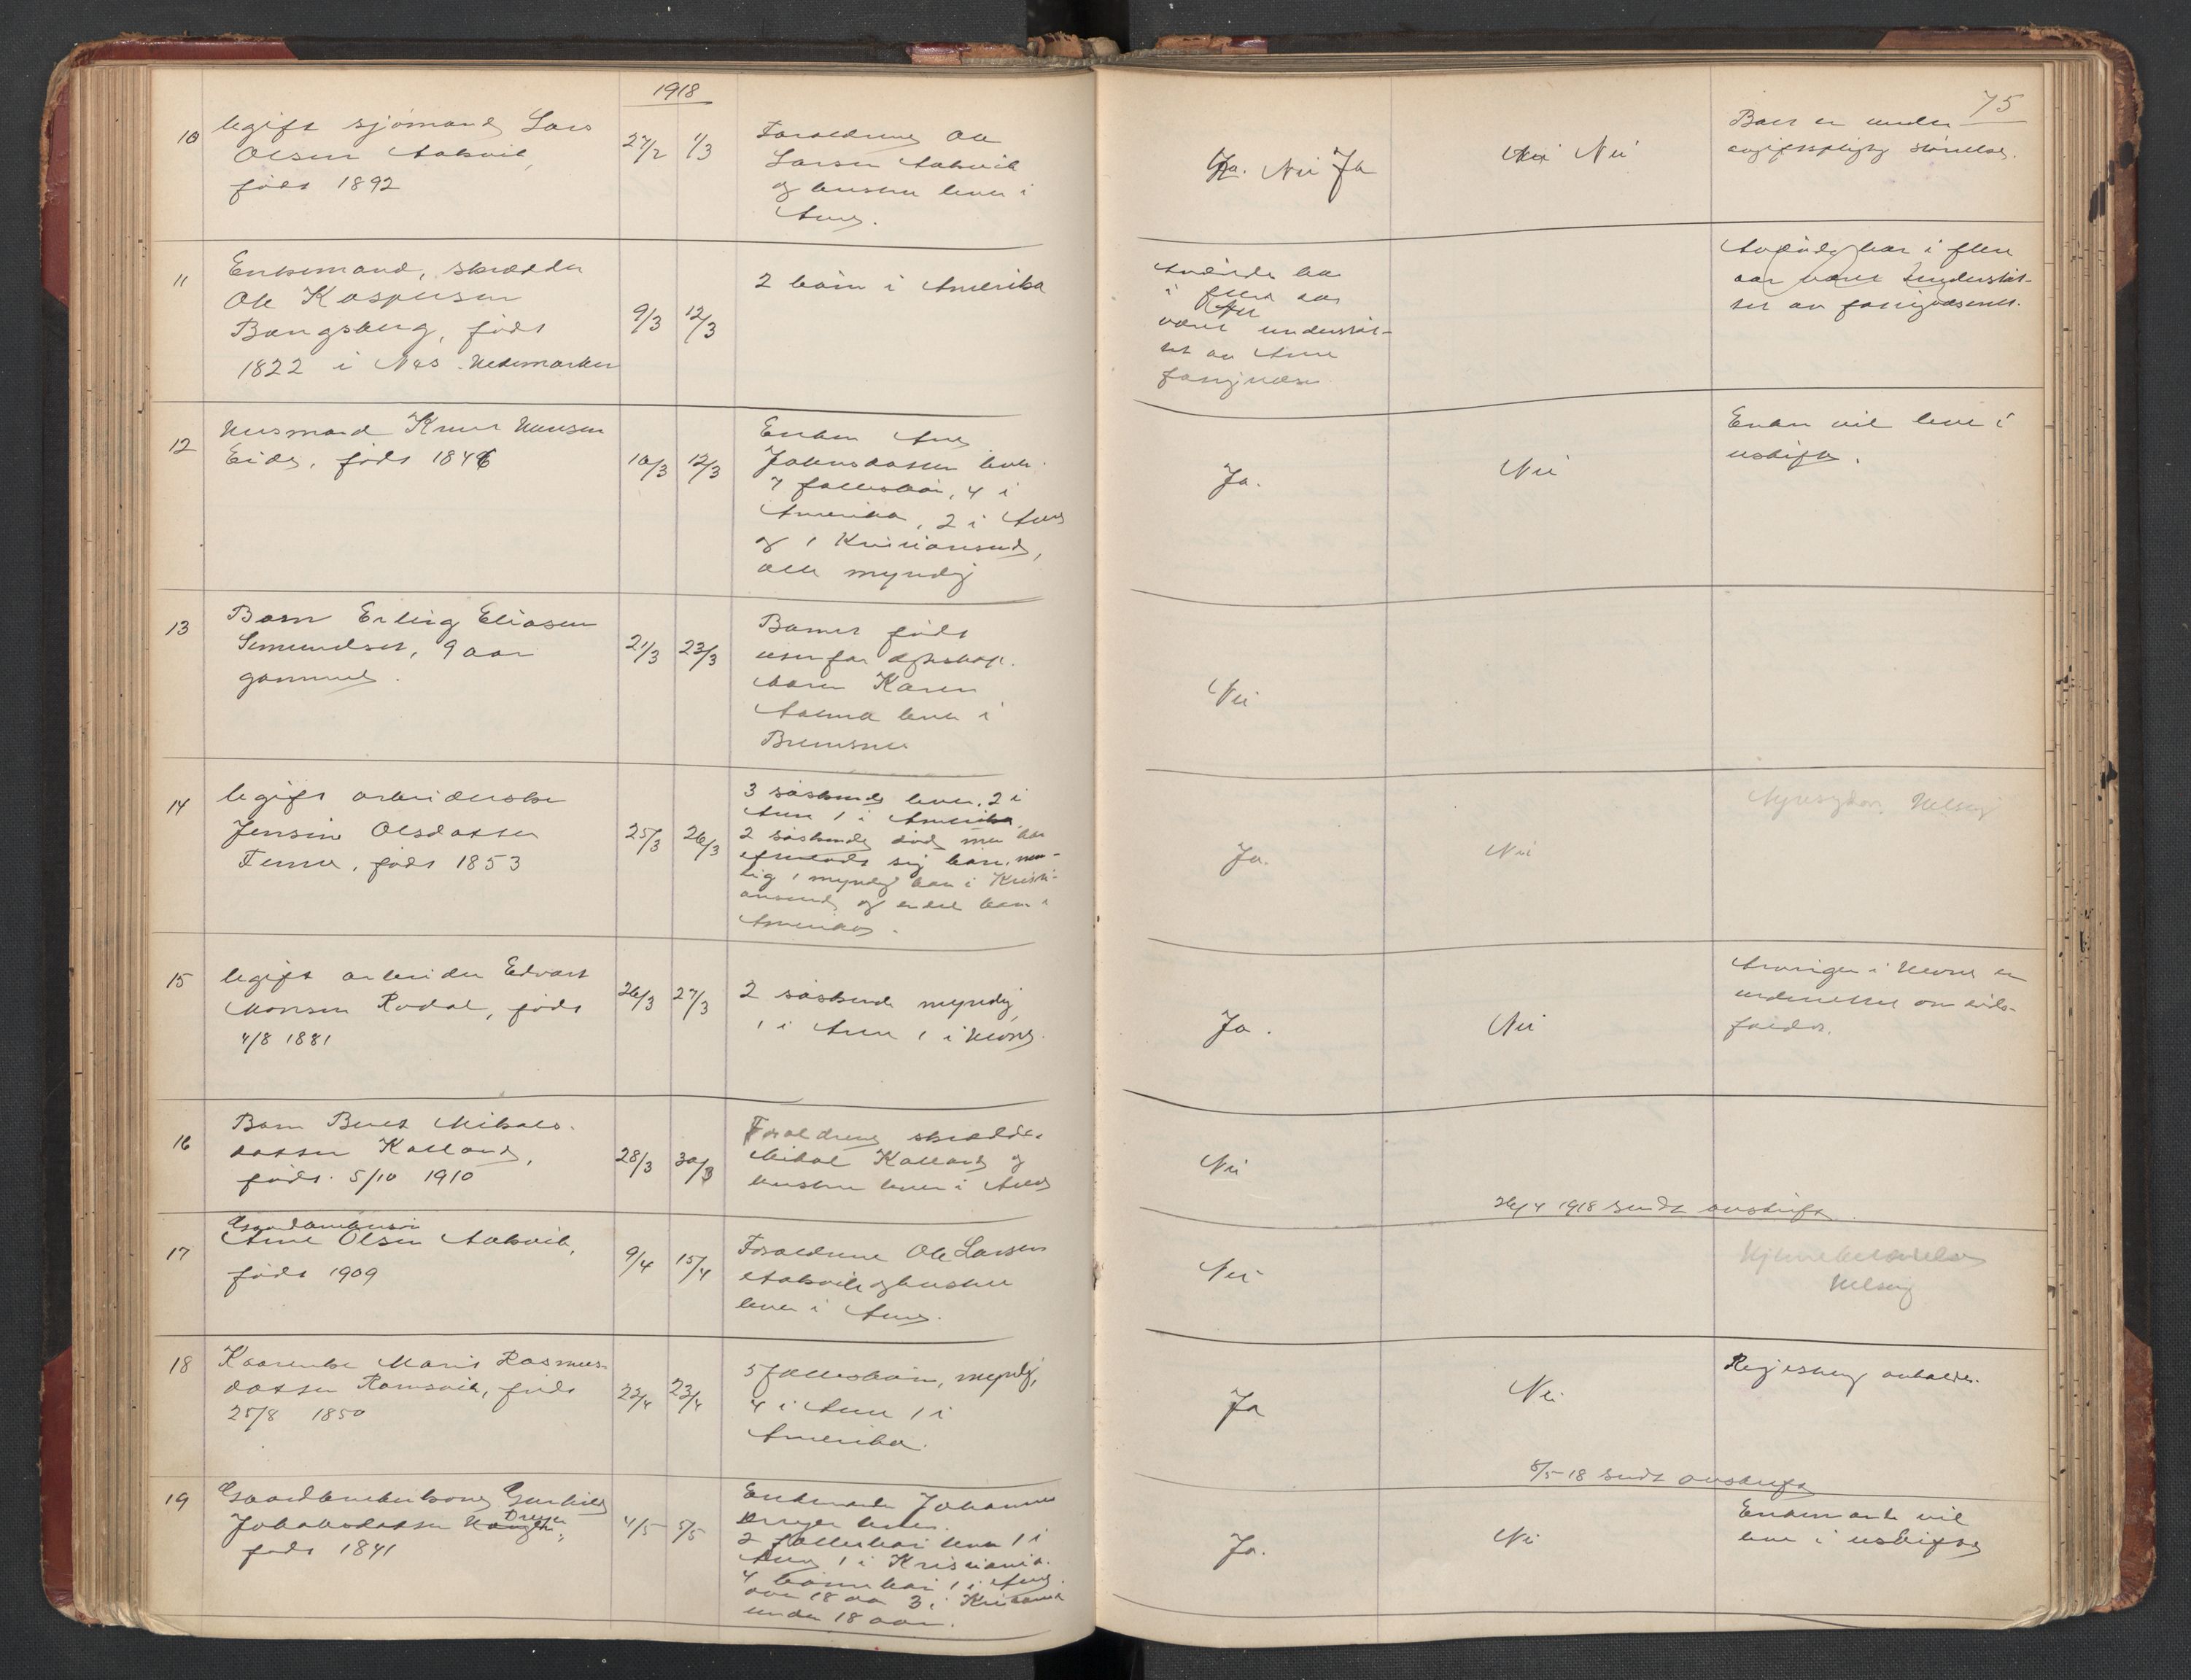 1918
75
10
Ugift sjømand Lars
Olsen Aakvik,
født 1892
27/2
1/3
Forældrene Ole
Larsen Aakvik
og hustru lever i
Aure.
Ja. Nei Ja
Nei Nei
Boet er under
avgiftspligtig størrelse.
11
Enkemand, skrædder
Ole Kaspersen
Bangsberg, født
1822 i Nes Hedemarken
9/3
12/3
2 børn i Amerika
Avdøde har
i flere aar
Nei
været understøt-
tet av Aure
fattigvæsen
Avdøde har i flere
aar været understøt-
tet av fattigvæsenet.
12
Husmand Knut Hansen
Eide, født 1846
10/3
12/3
Enken Ane
Johnsdatter lever.
7 fællesbørn, 4 i
Amerika, 2 i Aure
og 1 Kristiansund,
alle myndig
Ja.
Nei
Enken vil leve i
uskifte.
13
Barn Erling Eliasen
9 aar
gammel.
21/3
23/3
Barnet født
utenfor egteskap.
Moren Karen
lever i
Bremsnes
Nei
14
Ugift arbeiderske
Jensine Olsdatter
født 1853
25/3
26/3
3 søskende lever, 2 i
Aure 1 i Amerika
2 søskende døde men har
efterladt sig børn, nem-
lig 1 myndig barn i Kristi-
ansund og endel barn i
Amerika.
Ja.
Nei
15
Ugift arbeider Edvart
Monsen Rodal, født
4/8 1881
26/3
27/3
2 søskende myndig,
1 i Aure 1 i
Ja.
Nei
Arvingen i er
underrettet om døds-
faldet.
16
Barn Beret Mikals-
datter Kalland,
født 5/10 1910
28/3
30/3
Forældrene skrædder
Mikal Kalland og
hustru lever i Aure
Nei
26/4 1918 sendt avskrift
17
Gaardmandssøn
Arne Olsen Aakvik,
født 1909
9/4
15/4
Forældrene Ole Larsen
Aakvik og hustru
lever i Aure.
Nei
18
Kaarenke Marit Rasmus-
datter Ramsvik, født
25/8 1850
22/4
23/4
5 fællesbørn, myndig,
4 i Aure 1 i
Amerika.
Ja
Nei
8/5-18 sendt avskrift
19
Gaardbrukerkone Gunhild
Dreyer
Jakobsdatter
født 1841
4/5
5/5
Enkemanden Johannes
Dreyer lever.
2 fællesbørn lever 1 i
Aure 1 i Kristiania.
4 barnebørn 1 i Aure
over 18 aar 3 i Kristiania
under 18 aar.
Ja.
Nei
Enkemanden vil
leve i uskifte